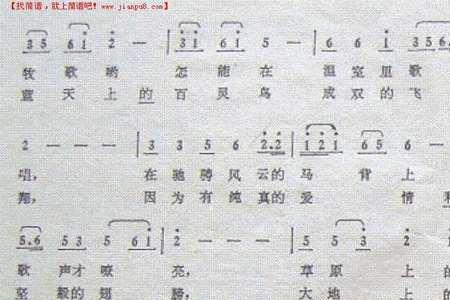 【找简谱，就上简谱吧！www.jianpu8.com】
3 5 6 i 2 — — | 3 i 6 i 5 — | 6 6 i 3 5 6
牧 歌 哟 怎 能 在 温 室 里 歌
蓝 天 上 的 百 灵 鸟 成 双 的 飞
2 — — — | 3 3 5 6 2.2 | 1 2 1 6 5 6 —
唱， 在 驰 骋 风 云 的 马 背 上
翔， 因 为 有 纯 真 的 爱 情 和
5.6 5 3 5 6 i | 2 — — — | 5 5 3 2
歌 声 才 嘹 亮， 草 原 上 的
坚 毅 的 翅 膀， 大 地 上 的